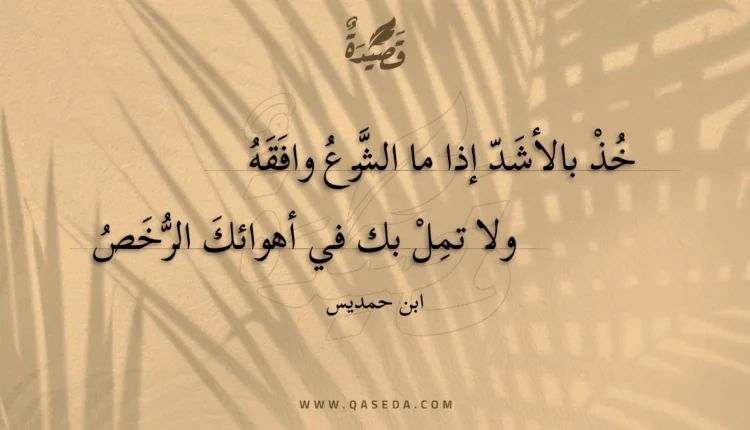 قَصِيْدَةٌ
خُذْ بالأشَدّ إذا ما الشَّرعُ وافَقَهُ
ولا تمِلْ بك في أهوائكَ الرُّخَصُ
ابن حمديس
WWW.QASEDA.COM